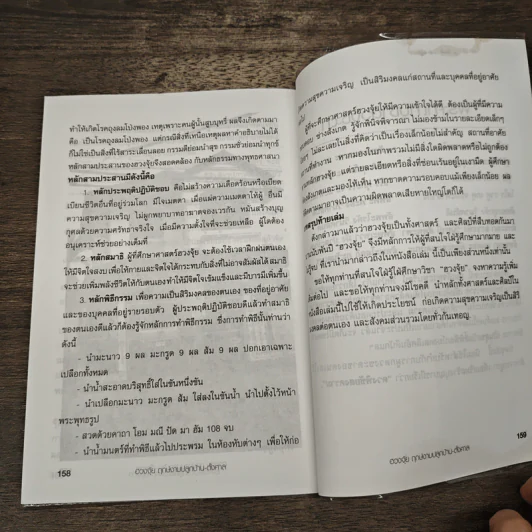 ทำให้เกิดโรคถุงลมโป่งพอง เหตุเพราะคนผู้นั้นสูบบุหรี่ ผลจึงเกิดตามมา
คือ เป็นโรคถุงลมโป่งพอง แต่กรณีสิ่งที่เหนือเหตุผลหาคำอธิบายไม่ได้
ก็ไม่ใช่เป็นสิ่งที่ไร้สาระเลื่อนลอย กรรมดีย่อมนำสุข กรรมชั่วย่อมนำทุกข์
หลักสามประสานของฮวงจุ้ยจึงสอดคล้อง กับหลักธรรมทางพุทธศาสนา
หลักสามประสานมีดังนี้คือ
1. หลักประพฤติปฏิบัติชอบ คือไม่สร้างความเดือดร้อนหรือเบียด
เบียนชีวิตอื่นที่อยู่ร่วมโลก มีใจเมตตา เผื่อแผ่ความเมตตาให้ผู้ อื่นมี
ความสุขความเจริญ ไม่ผูกพยาบาทอาฆาตจองเวรกัน หมั่นสร้างบุญ
กุศลด้วยความศรัทธาจริงใจ เมื่อมีความตั้งใจที่จะช่วยเหลือ ผู้ใดต้อง
อนุเคราะห์ช่วยอย่างเต็มที่
2. หลักสมาธิ ผู้ที่ศึกษาศาสตร์ฮวงจุ้ย จะต้องใช้เวลาฝึกฝนตนเอง
ให้มีจิตใจสงบ เพื่อให้กายและจิตใจได้กระทบกับสิ่งที่ไม่อาจสัมผัสได้ สมาธิ
จะช่วยเพิ่มพลังชีวิตให้กับตนเอง ทำให้มีจิตใจเข้มแข็งและมีบารมีเพิ่มขึ้น
3. หลักพิธีกรรม เพื่อความเป็นสิริมงคลของตนเอง ของที่อยู่อาศัย
และของบุคคลที่อยู่รายรอบตัว ผู้ประพฤติปฏิบัติชอบดีแล้วทำสมาธิ
ของตนเองดีแล้วก็ต้องรู้จักหลักการทำพิธีกรรม ซึ่งการทำพิธีนั้นทำนว่า
ดังนี้
- นำมะนาว 9 ผล มะกรูด 9 ผล ส้ม 9 ผล ปอกเอาเฉพาะ
เปลือกทั้งหมด
- นำน้ำสะอาดบริสุทธิ์ใส่ในขันหนึ่งขัน
- นำเปลือกมะนาว มะกรูด ส้ม ใส่ลงในขันน้ำ นำไปตั้งไว้หน้า
พระพุทธรูป
- สวดด้วยคาถา โอม มณี ปัด มา ฮัม 108 จบ
- นำน้ำมนตร์ที่ทำพิธีแล้วไปประพรม ในห้องหับต่างๆ เพื่อให้ก่อ
158
ฮวงจุ้ย
ความสุขความเจริญ เป็นสิริมงคลแก่สถานที่และบุคคลที่อยู่อาศัย
ผู้ที่จะศึกษาศาสตร์ฮวงจุ้ยให้มีความเข้าใจได้ดี ต้องเป็นผู้ที่มีความ
ช่างสังเกต รู้จักพินิจพิจารณา ไม่มองข้ามในรายละเอียดเล็กๆ
ไม่ละเลยในสิ่งที่คิดว่าเป็นเรื่องเล็กน้อยไม่สำคัญ สถานที่อาศัย
หากมองในภาพรวมไม่มีสิ่งใดผิดพลาดหรือไม่ถูกต้อง
แต่รายละเอียดหรือสิ่งที่ซ่อนเร้นอยู่ในเรามีด ผู้ศึกษา
และมองให้เห็น หากขาดความรอบคอบแม้เพียงเล็กน้อย ผล
อาจเป็นความผิดพลาดเสียหายใหญ่โตก็ได้
สรุปท้ายเล่ม
ดังกล่าวมาแล้วว่าฮวงจุ้ยเป็นทั้งศาสตร์ และศิลป์ที่สืบทอดกันมา
นับพันปี "ฮวงจุ้ย" จึงมีหลักการให้ผู้ที่สนใจใฝ่รู้ศึกษามากมาย และ
ที่เรานำมากล่าวถึงในหนังสือเล่ม นี้เป็นเพียงส่วนหนึ่งเท่านั้น
ขอให้ทุกท่านที่สนใจใฝ่รู้ใฝ่ศึกษาวิชา "ฮวงจุ้ย" จงหาความรู้เพิ่ม
ต่อไป และขอให้ทุกท่านจงมีโชคดี นำหลักทั้งศาสตร์และศิลป์ใน
หนังสือเล่มนี้ไปใช้ให้เกิดประโยชน์ ก่อเกิดความสุขความเจริญเป็นสิริ
มงคลต่อตนเอง และสังคมส่วนรวมโดยทั่วกันเทอญ.
ฮวงจุ้ย
159